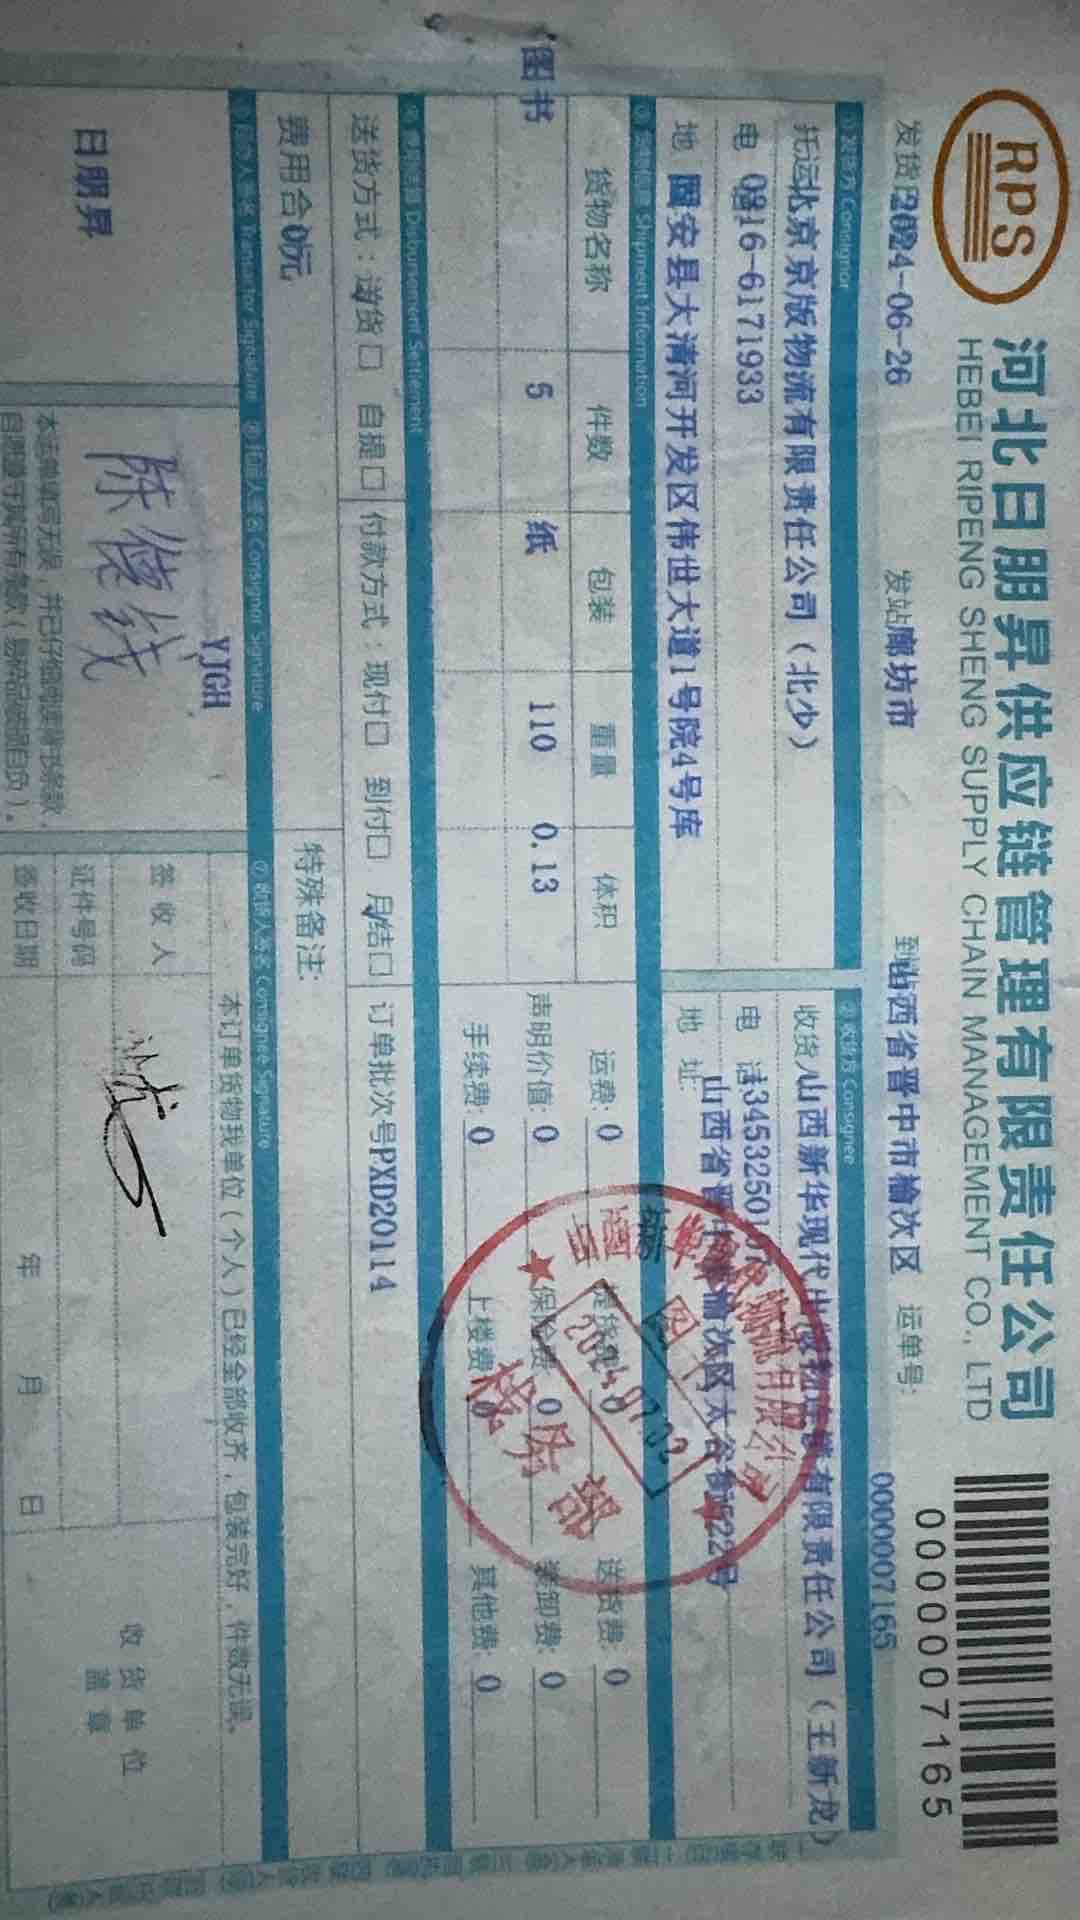 RPS
河北日朋昇供应链管理有限责任公司
HEBEI RIPENG SHENG SUPPLY CHAIN MANAGEMENT CO., LTD
0000007165
发货日2024-06-26 发站廊坊市 到站山西省晋中市榆次区 运单号: 0000007165
①发货方 Consignor
托运北京京版物流有限责任公司（北少）
电 0316-6171933
地 固安县大清河开发区伟世大道1号院4号库
②收货方 Consignee
收货人山西新华现代出版物连锁有限责任公司（王新龙）
电 话
地 址: 山西省晋中市榆次区太谷街522号
③货物信息 Shipment Information
货物名称 件数 包装 重量 体积
图书 5 纸 110 0.13
运费: 0 提货费 0 送货费: 0
声明价值: 0 保险费 0 装卸费: 0
手续费: 0 上楼费: 0 其他费: 0
业务部
2024.07.02
④费用结算 Disbursement Settlement
送货方式：送货口 自提口 付款方式：现付口 到付口 月结口 订单批次号PXD20114
费用合0元
特殊备注:
⑤承运人签名 Transactor Signature ⑥托运人签名 Consignor Signature ⑦收货人签名 Consignee Signature
日朋昇
YJGH
本运单填写无误，并已仔细阅读背书条款，
自愿遵守其所有条款（易碎品破损自负）。
本订单货物我单位（个人）已经全部收齐，包装完好，件数无误。
签收人
证件号码
签收日期 年 月 日
收货单位
盖章